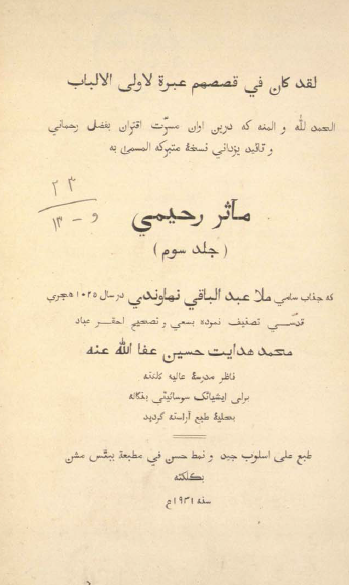 لقد كان في قصصهم عبرة لاولى الالباب
الحمد لله و المنه كه درين اوان مسرّت اقتران بفضل رحماني
و تائيد يزداني نسخهٔ متبركه المسمى به
٢٣
و - ١٣
مآثر رحيمي
( جلد سوم )
كه جناب سامي ملا عبد الباقي نهاوندي در سال ١٠٢٥ هجري
قدسي تصنيف نموده بسعي و تصحيح احقر عباد
محمد هدايت حسين عفا الله عنه
ناظر مدرسهٔ عاليه كلكته
براى ايشياٹک سوسائيٹي بنگاله
بحليهٔ طبع آراسته گرديد
طبع على اسلوب جيد و نمط حسن في مطبعة ببٹس مشن
بكلكته
سنه ١٩٣١ع